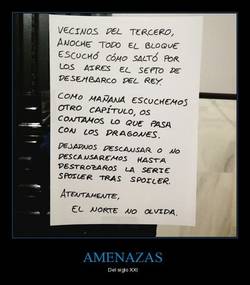 VECINOS DEL TERCERO,
ANOCHE TODO EL BLOQUE
ESCUCHÓ CÓMO SALTÓ POR
LOS AIRES EL SEPTO DE
DESEMBARCO DEL REY.
COMO MAÑANA ESCUCHEMOS
OTRO CAPÍTULO, OS
CONTAMOS LO QUE PASA
CON LOS DRAGONES.
DEJADNOS DESCANSAR O NO
DESCANSAREMOS HASTA
DESTROZAROS LA SERIE
SPOILER TRAS SPOILER.
ATENTAMENTE,
EL NORTE NO OLVIDA.
AMENAZAS
Del siglo XXI